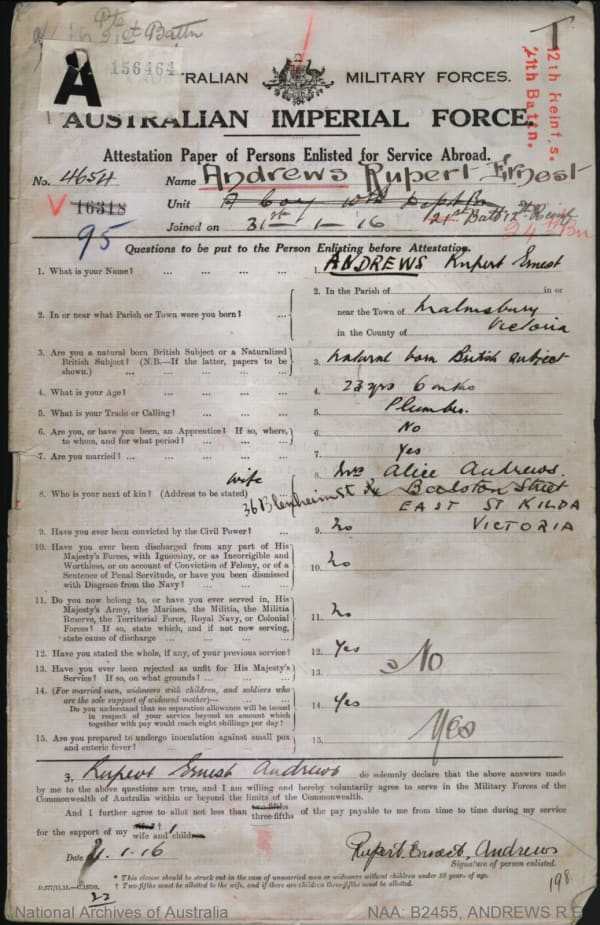 21st Battn
A
156464
AUSTRALIAN MILITARY FORCES.
12th Reinf,s.
21th Battn.
AUSTRALIAN IMPERIAL FORCE.
Attestation Paper of Persons Enlisted for Service Abroad.
No. 4654 Name Andrews Rupert Ernest
16318 Unit A Coy 10th Depot Bn 21st Battn 12th Reinf
24th Bn
Joined on 31st - 1 - 16
95
Questions to be put to the Person Enlisting before Attestation.
1. What is your Name? ... ... ... ... 1. ANDREWS Rupert Ernest
2. In or near what Parish or Town were you born? ... 2. In the Parish of in or
near the Town of Malmsbury
in the County of Victoria
3. Are you a natural born British Subject or a Naturalized
British Subject? (N.B.—If the latter, papers to be
shown.) ... ... ... ... 3. Natural born British subject
4. What is your Age? ... ... ... ... 4. 23 yrs 6 mths
5. What is your Trade or Calling? ... ... ... 5. Plumber.
6. Are you, or have you been, an Apprentice? If so, where,
to whom, and for what period? ... ... ... 6. No
7. Are you married? ... ... ... ... ... 7. Yes
wife
8. Who is your next of kin? (Address to be stated) 8. Mrs Alice Andrews.
36 Blenheim St Street
EAST ST KILDA
VICTORIA
9. Have you ever been convicted by the Civil Power? ... 9. No
10. Have you ever been discharged from any part of His
Majesty's Forces, with Ignominy, or as Incorrigible and
Worthless, or on account of Conviction of Felony, or of a
Sentence of Penal Servitude, or have you been dismissed
with Disgrace from the Navy? ... ... ... 10. No
11. Do you now belong to, or have you ever served in, His
Majesty's Army, the Marines, the Militia, the Militia
Reserve, the Territorial Force, Royal Navy, or Colonial
Forces? If so, state which, and if not now serving,
state cause of discharge ... ... ... 11. No
12. Have you stated the whole, if any, of your previous service? 12. Yes
13. Have you ever been rejected as unfit for His Majesty's
Service? If so, on what grounds? ... ... 13. No
14. (For married men, widowers with children, and soldiers who
are the sole support of widowed mother)—
Do you understand that no separation allowance will be issued
in respect of your service beyond an amount which
together with pay would reach eight shillings per day? 14. Yes
15. Are you prepared to undergo inoculation against small pox
and enteric fever? ... ... ... ... 15. Yes
I, Rupert Ernest Andrews do solemnly declare that the above answers made
by me to the above questions are true, and I am willing and hereby voluntarily agree to serve in the Military Forces of the
Commonwealth of Australia within or beyond the limits of the Commonwealth.
And I further agree to allot not less than two-fifths three-fifths of the pay payable to me from time to time during my service
for the support of my wife and children
Date 1.16 Rupert Ernest Andrews
Signature of person enlisted.
* This clause should be struck out in the case of unmarried men or widowers without children under 18 years of age.
† Two-fifths must be allotted to the wife, and if there are children three-fifths must be allotted.
198
22
National Archives of Australia NAA: B2455, ANDREWS R E